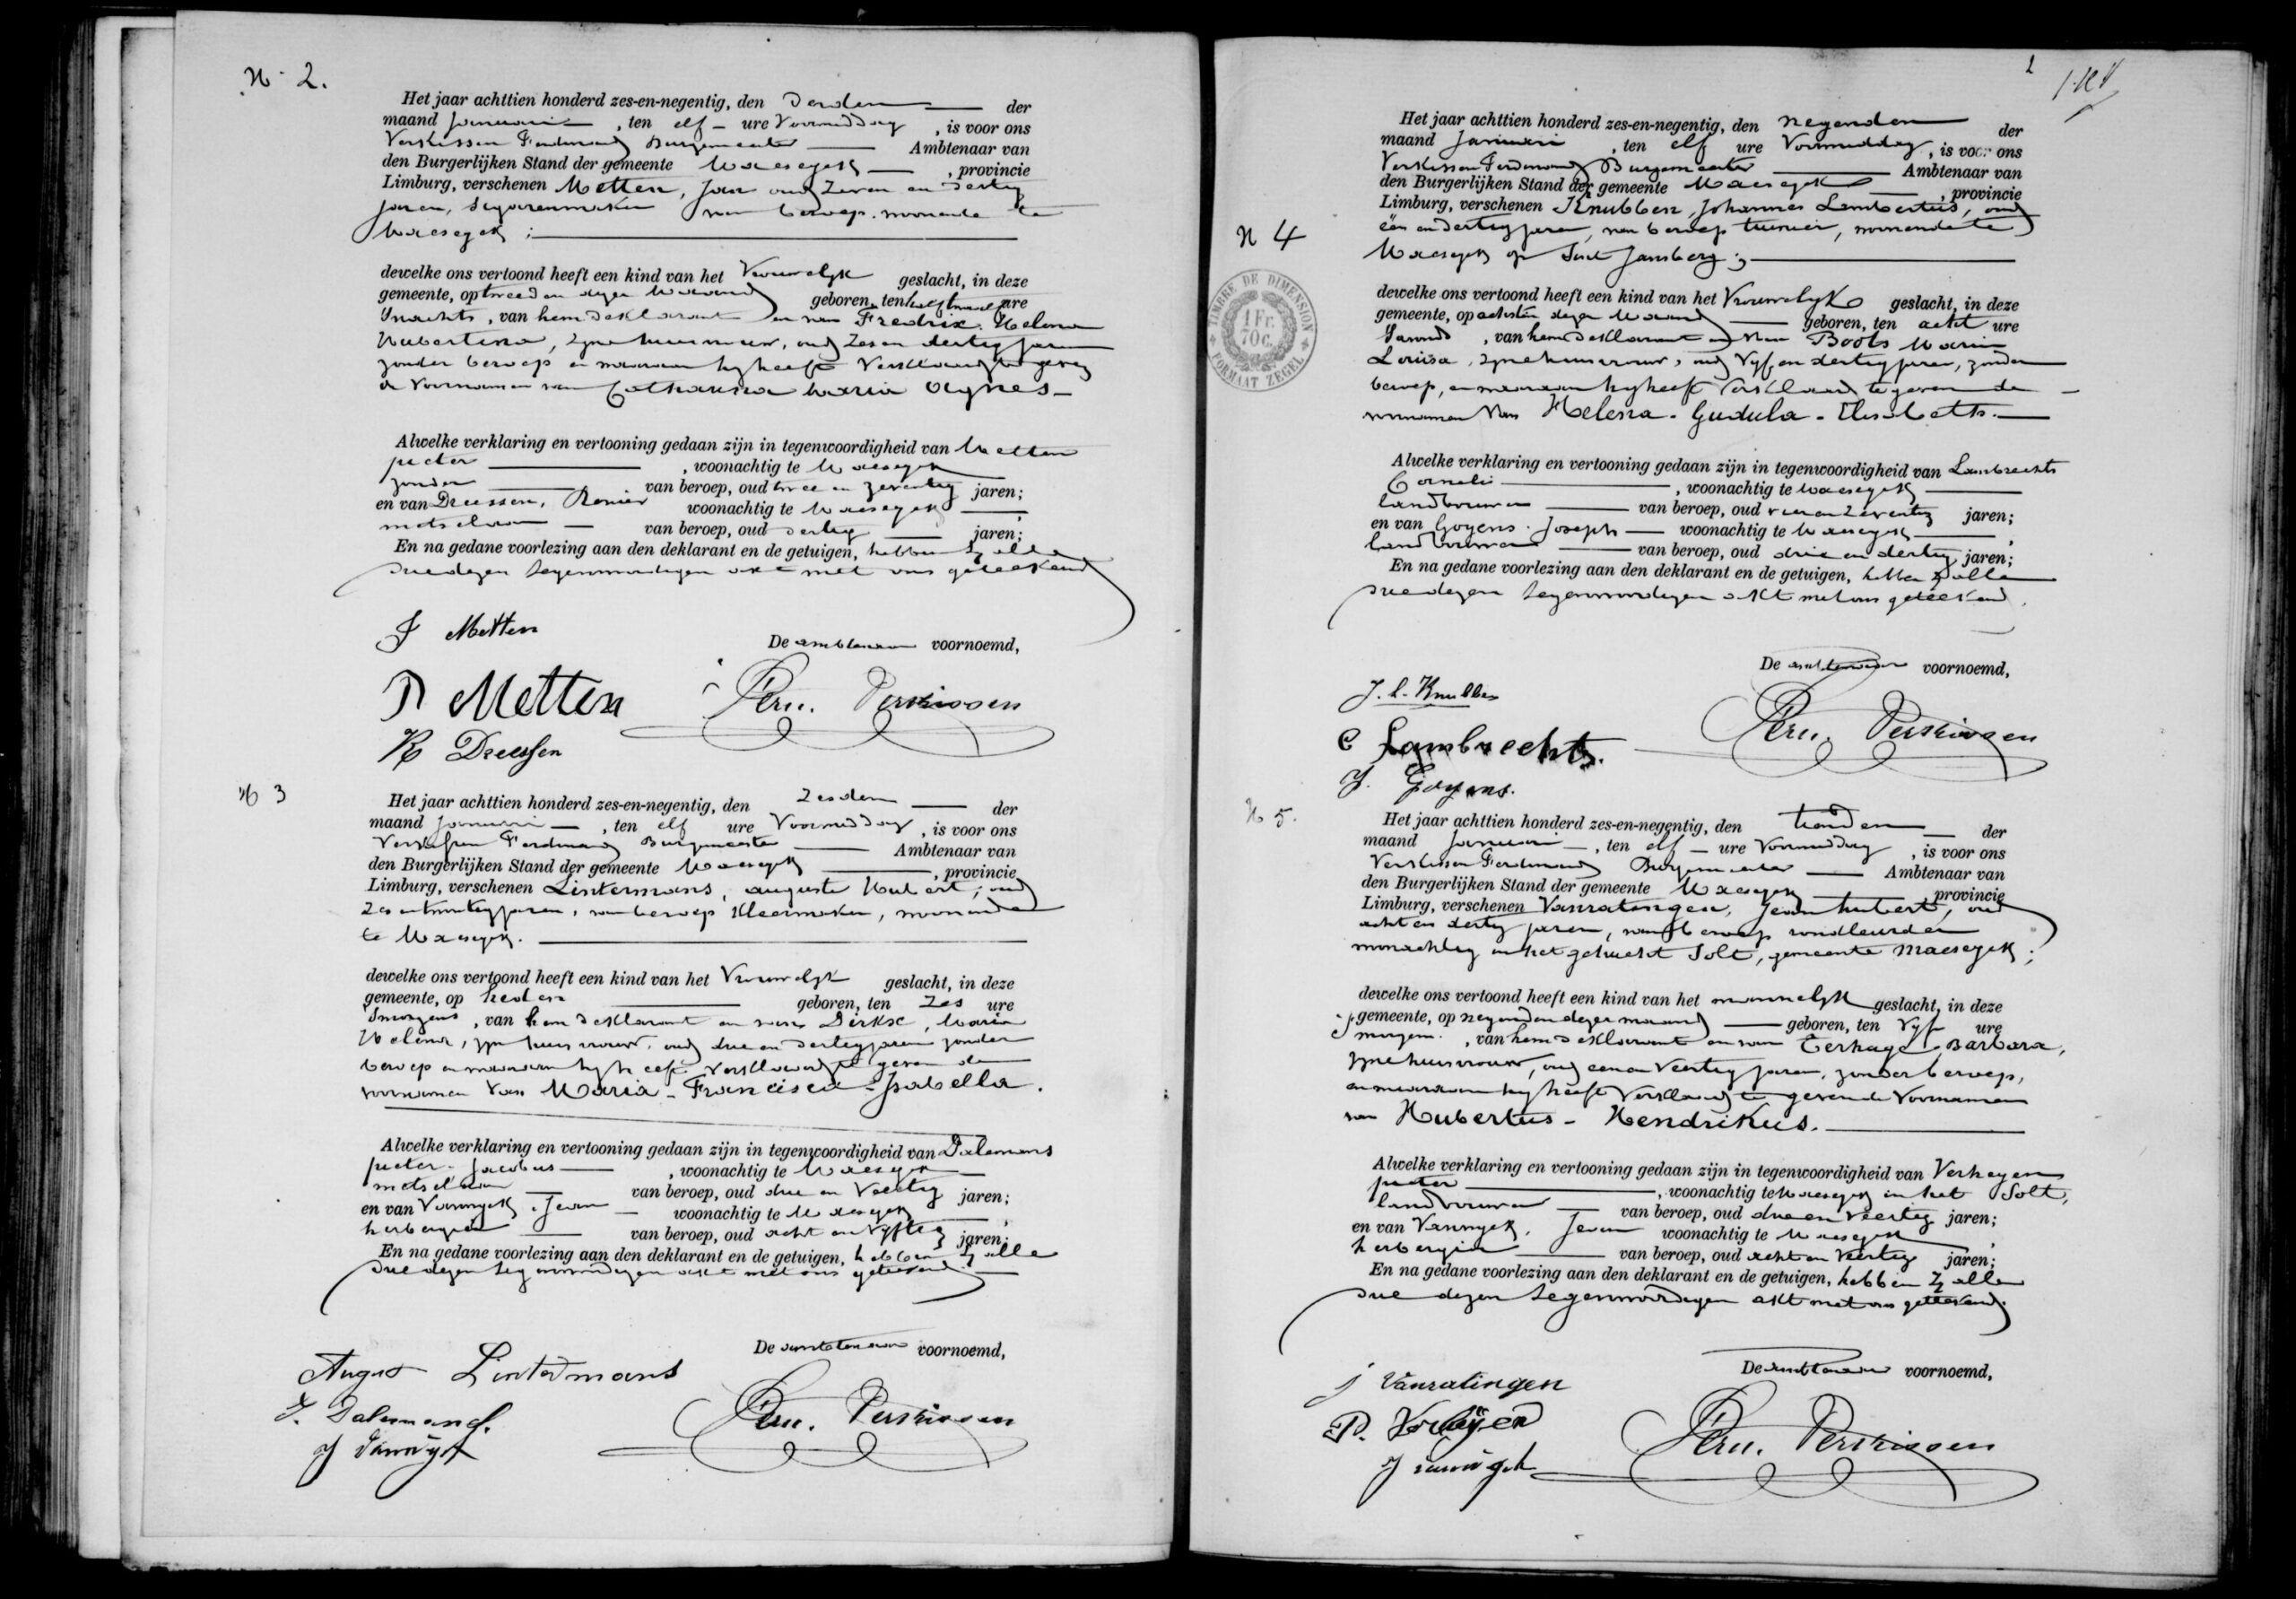 N. 2.
Het jaar achttien honderd zes-en-negentig, den derden der
maand januari, ten elf ure Voormiddag, is voor ons
Verkissen Ferdinand Burgemeester Ambtenaar van
den Burgerlijken Stand der gemeente Maeseyck, provincie
Limburg, verschenen Metten, Jan oud zeven en dertig
jaren, sigarenmaker van beroep, wonende te
Maeseyck;
dewelke ons vertoond heeft een kind van het Vrouwelyk geslacht, in deze
gemeente, op tweeden dezer Maand geboren, ten half twaalf ure
Snachts, van hem deklarant en van Fredrix, Helena
Hubertina, zyne huisvrouw, oud zes en dertig jaren
zonder beroep en waaraan hy heeft Verklaard te geven
de Voornamen van Catharina Maria Agnes
Alwelke verklaring en vertooning gedaan zijn in tegenwoordigheid van Metten
pieter, woonachtig te Maeseyck
zonder van beroep, oud twee en zeventig jaren;
en van Dreessen, Renier woonachtig te Maeseyck
metselaar van beroep, oud dertig jaren;
En na gedane voorlezing aan den deklarant en de getuigen, hebben zy alle
drie dezen tegenwoordigen akt met ons geteekend
J Metten
De ambtenaar voornoemd,
P Metten
Fern. Verkissen
R Dreessen
N 3
Het jaar achttien honderd zes-en-negentig, den Zesden der
maand januari, ten elf ure Voormiddag, is voor ons
Verkissen Ferdinand Burgemeester Ambtenaar van
den Burgerlijken Stand der gemeente Maeseyck, provincie
Limburg, verschenen Lintermans, auguste Hubert, oud
zes entwintig jaren, van beroep Kleermaker, wonende
te Maeseyck.
dewelke ons vertoond heeft een kind van het Vrouwelyk geslacht, in deze
gemeente, op heden geboren, ten zes ure
Smorgens, van hem deklarant en van Dirkx, Maria
Helena, zyn huisvrouw, oud drie en dertig jaren zonder
beroep en waaraan hy heeft Verklaard te geven de
voornamen Van Maria - Francisca - Isabella.
Alwelke verklaring en vertooning gedaan zijn in tegenwoordigheid van Dalemans
pieter - Jacobus, woonachtig te Maeseyck
metselaar van beroep, oud drie en Veertig jaren;
en van Vanwyck, Jean woonachtig te Maeseyck
herbergier van beroep, oud acht en Vyftig jaren;
En na gedane voorlezing aan den deklarant en de getuigen, hebben zy alle
drie dezen tegenwoordigen akt met ons geteekend.
De ambtenaar voornoemd,
August Lintermans
J. Dalemans
Fern. Verkissen
J Vanwyck
2
Het jaar achttien honderd zes-en-negentig, den negenden der
maand Januari, ten elf ure Voormiddag, is voor ons
Verkissen Ferdinand Burgemeester Ambtenaar van
den Burgerlijken Stand der gemeente Maeseyck, provincie
Limburg, verschenen Knubben, Johannes Lambertus, oud
N 4
één en dertig jaren, van beroep tuinier, wonende te
Maeseyck op Sint Jansberg;
TIMBRE DE DIMENSION
1 Fr.
70 c.
FORMAAT ZEGEL
dewelke ons vertoond heeft een kind van het Vrouwelyk geslacht, in deze
gemeente, op achtsten dezer Maand geboren, ten acht ure
Savonds, van hem deklarant en Van Boots Maria
Louisa, zyne huisvrouw, oud Vyf en dertig jaren, zonder
beroep, en waaraan hy heeft Verklaard te geven de
voornamen Van Helena - Gudula - Elisabeth.
Alwelke verklaring en vertooning gedaan zijn in tegenwoordigheid van Lambrechts
Corneli, woonachtig te Maeseyck
landbouwer van beroep, oud vier en zeventig jaren;
en van Goyens. Joseph woonachtig te Maeseyck
landbouwer van beroep, oud drie en dertig jaren;
En na gedane voorlezing aan den deklarant en de getuigen, hebben zy alle
drie dezen tegenwoordigen akt met ons geteekend.
De ambtenaar voornoemd,
J. L. Knubben
C Lambrechts.
Fern. Verkissen
J. Goyens.
N 5.
Het jaar achttien honderd zes-en-negentig, den tienden der
maand Januari, ten elf ure Voormiddag, is voor ons
Verkissen Ferdinand Burgemeester Ambtenaar van
den Burgerlijken Stand der gemeente Maeseyck provincie
Limburg, verschenen Vanratingen, Jean hubert, oud
acht en dertig jaren, van beroep rondleurder
woonachtig in het gehucht Solt, gemeente Maeseyck;
dewelke ons vertoond heeft een kind van het mannelyk geslacht, in deze
gemeente, op negenden dezer maand geboren, ten Vyf ure
smorgens, van hem deklarant en van Terhage, Barbara,
zyne huisvrouw, oud een en Veertig jaren, zonder beroep,
en waaraan hy heeft Verklaard te geven de Voornamen
van Hubertus - Hendrikus.
Alwelke verklaring en vertooning gedaan zijn in tegenwoordigheid van Verheyen
pieter, woonachtig te Maeseyck in het Solt,
landbouwer van beroep, oud drie en Veertig jaren;
en van Vanwyck, Jean woonachtig te Maeseyck
herbergier van beroep, oud acht en Veertig jaren;
En na gedane voorlezing aan den deklarant en de getuigen, hebben zy alle
drie dezen tegenwoordigen akt met ons geteekend.
De ambtenaar voornoemd,
J Vanratingen
P. Verheyen
Fern. Verkissen
J vanwyck